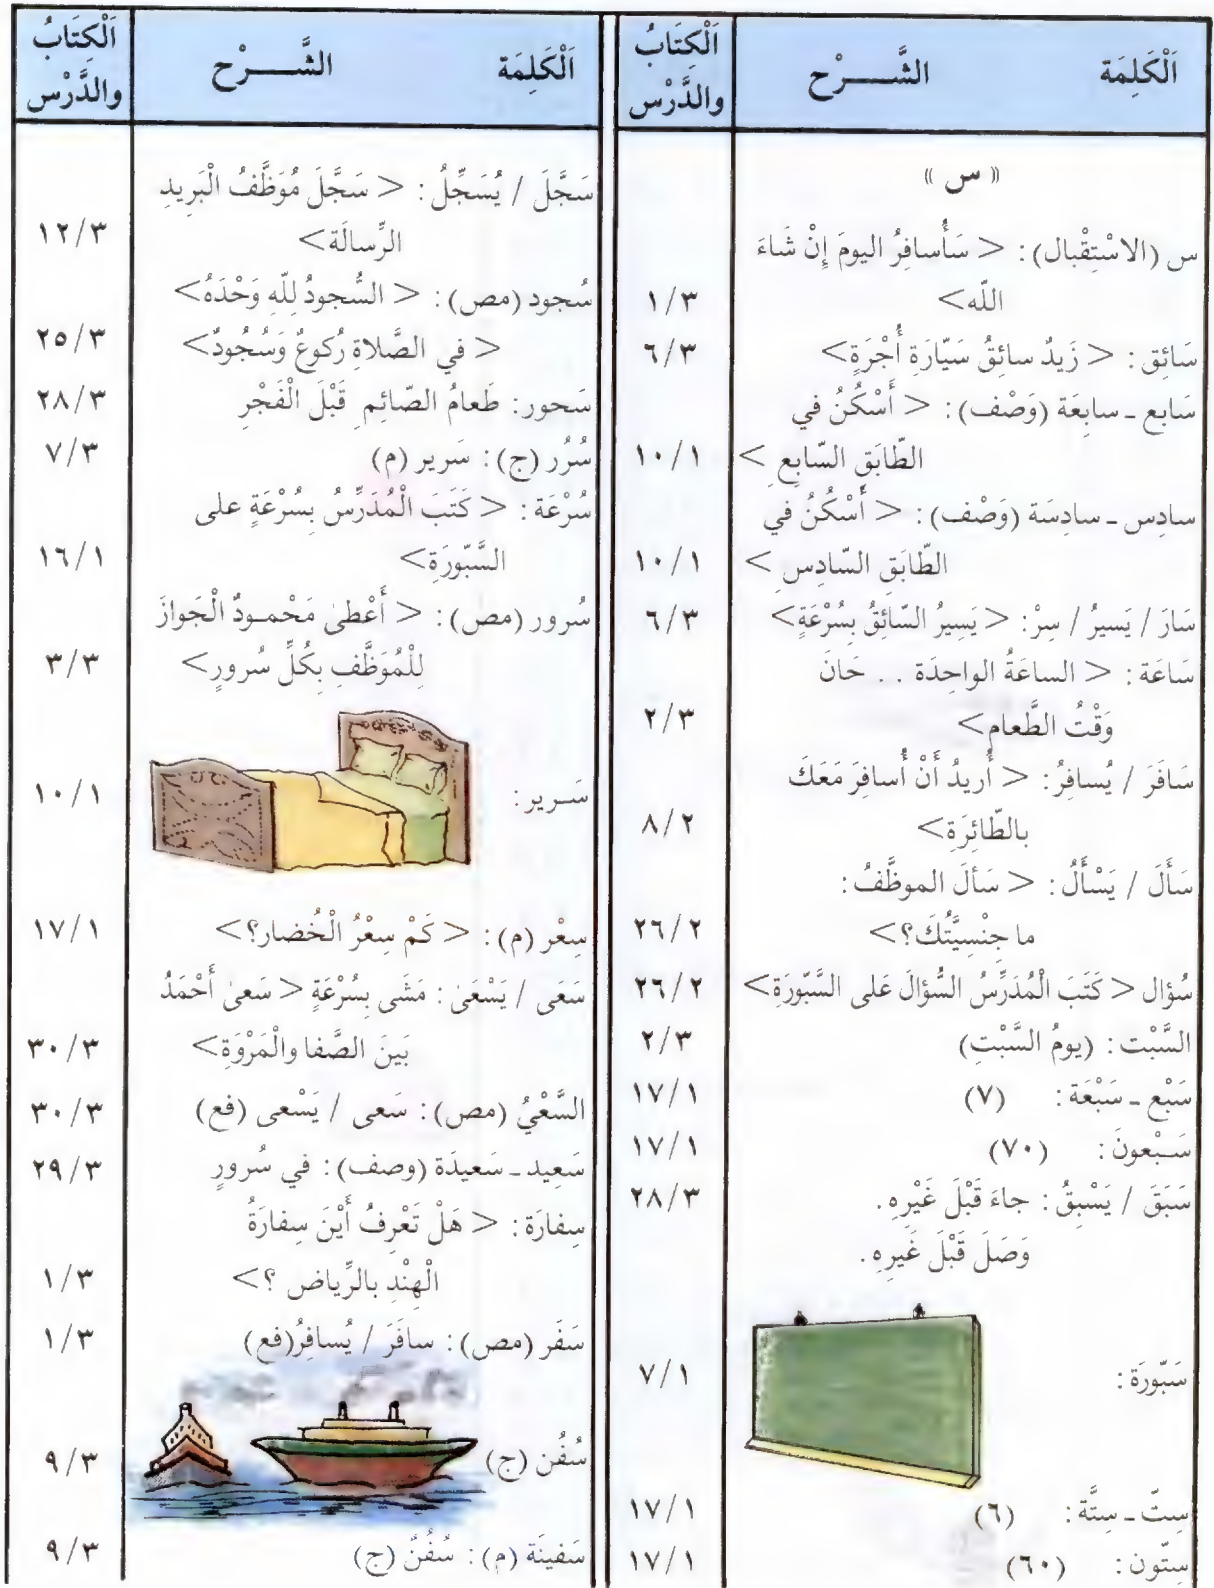 اَلْكَلِمَة الشَّـــرْح اَلْكِتَابُ والدَّرْس
« س »
س (الاسْتِقْبال) : < سَأُسافِرُ اليومَ إِنْ شَاءَ
اللّه> ١/٣
سَائِق : < زَيدٌ سائِقُ سَيّارَةِ أُجْرَةٍ> ٦/٣
سَابع ـ سابِعَة (وَصْف) : < أَسْكُنُ في
الطّابَقِ السّابِعِ > ١٠/١
سادِس ـ سادِسَة (وَصْف) : < أَسْكُنُ في
الطّابَقِ السّادِسِ > ١٠/١
سَارَ / يَسيرُ / سِرْ : < يَسِيرُ السّائِقُ بِسُرْعَةٍ> ٦/٣
سَاعَة : < الساعَةُ الواحِدَة . . حَانَ
وَقْتُ الطَّعام> ٢/٣
سَافَرَ / يُسافِرُ : < أُريدُ أَنْ أُسافِرَ مَعَكَ
بالطّائِرَةِ> ٨/٢
سَأَلَ / يَسْأَلُ : < سَألَ الموظَّفُ :
ما جِنْسِيَّتُكَ؟> ٢٦/٢
سُؤال < كَتَبَ الْمُدَرِّسُ السُّؤالَ عَلى السَّبّورَةِ> ٢٦/٢
السَّبْت : (يومُ السَّبْتِ) ٢/٣
سَبْع ـ سَبْعَة : (٧) ١٧/١
سَـبْعونَ : (٧٠) ١٧/١
سَبَقَ / يَسْبِقُ : جاءَ قَبْلَ غَيْرِهِ . ٢٨/٣
وَصَلَ قَبْلَ غَيرِهِ .
سَبّورَة : ٧/١
سِتّ ـ سِتَّة : (٦) ١٧/١
سِتّون : (٦٠) ١٧/١
اَلْكَلِمَة الشَّـــرْح اَلْكِتَابُ والدَّرْس
سَجَّلَ / يُسَجِّلُ : < سَجَّلَ مُوَظَّفُ الْبَريدِ
الرِّسالَة> ١٢/٣
سُجود (مص) : < السُّجودُ لِلّهِ وَحْدَهُ>
< في الصَّلاةِ رُكوعٌ وَسُجُودٌ> ٢٥/٣
سَحور : طَعامُ الصّائِمِ قَبْلَ الْفَجْرِ ٢٨/٣
سُرُر (ج) : سَرير (م) ٧/٣
سُرْعَة : < كَتَبَ الْمُدَرِّسُ بِسُرْعَةٍ على
السَّبّورَةِ> ١٦/١
سُرور (مص) : < أَعْطىٰ مَحْمـودٌ الْجَوازَ
لِلْمُوَظَّفِ بِكُلِّ سُرورٍ> ٣/٣
سَـرير : ١٠/١
سِعْر (م) : < كَمْ سِعْرُ الْخُضار؟> ١٧/١
سَعَى / يَسْعَىٰ : مَشَى بِسُرْعَةٍ < سَعىٰ أَحْمَدُ
بَينَ الصَّفا والْمَرْوَةِ> ٣٠/٣
السَّعْيُ (مص) : سَعى / يَسْعى (فع) ٣٠/٣
سَعِيد ـ سَعيدَة (وصف) : في سُرورٍ ٢٩/٣
سِفارَة : < هَلْ تَعْرِفُ أَيْنَ سِفارَةُ
الْهِنْدِ بالرِّياض ؟> ١/٣
سَفَر (مص) : سافَرَ / يُسافِرُ(فع) ١/٣
سُفُن (ج) ٩/٣
سَفينَة (م) : سُفُنٌ (ج) ٩/٣